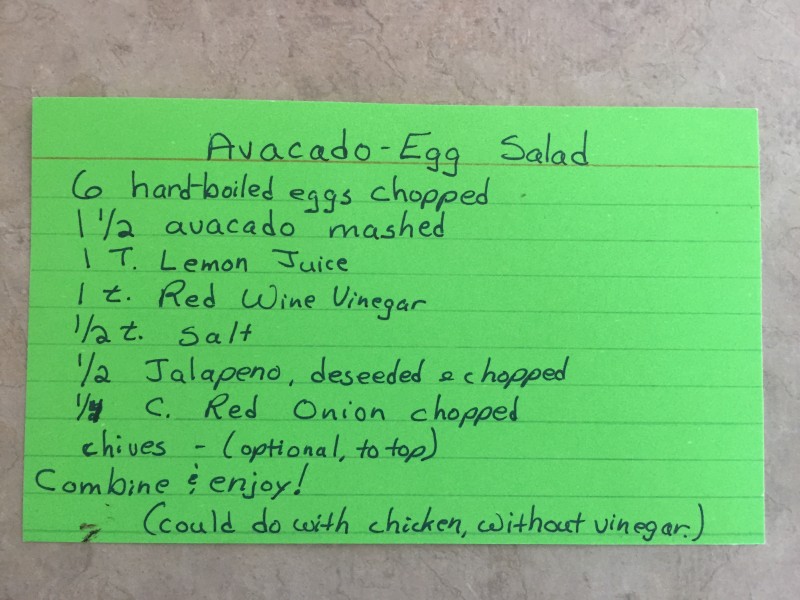 Avacado-Egg Salad
6 hard-boiled eggs chopped
1 1/2 avacado mashed
1 T. Lemon Juice
1 t. Red Wine Vinegar
1/2 t. Salt
1/2 Jalapeno, deseeded & chopped
C. Red Onion chopped
chives - (optional, to top)
Combine & enjoy!
(could do with chicken, without vinegar.)